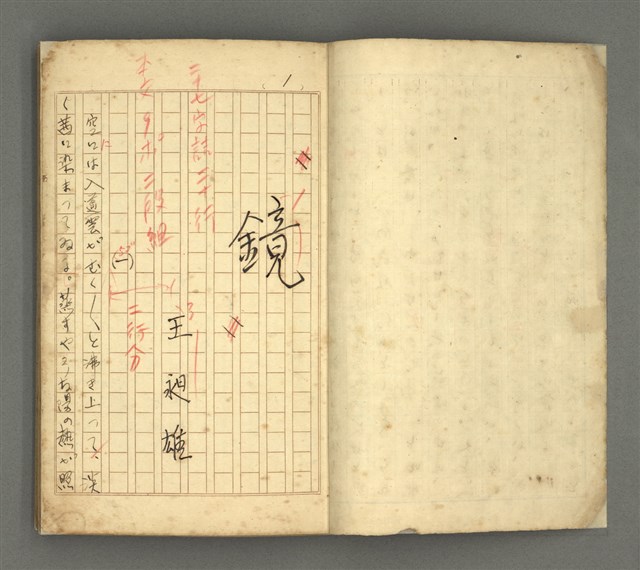 (1)
鏡
二十七字詰二十行
王昶雄
本文9ポ二段組
(一)
二行分
空には入道雲がむく〱と沸き上つて、淡
く茜に染まつてゐる。蒸すやうな陽の熱が照